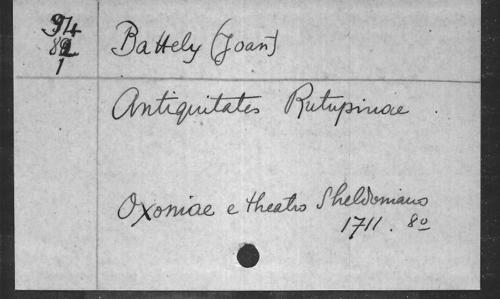 Battely (Joan)
Antiquitates Rutupinae.
Oxoniae e theatro Sheldoniano
1711. 8o